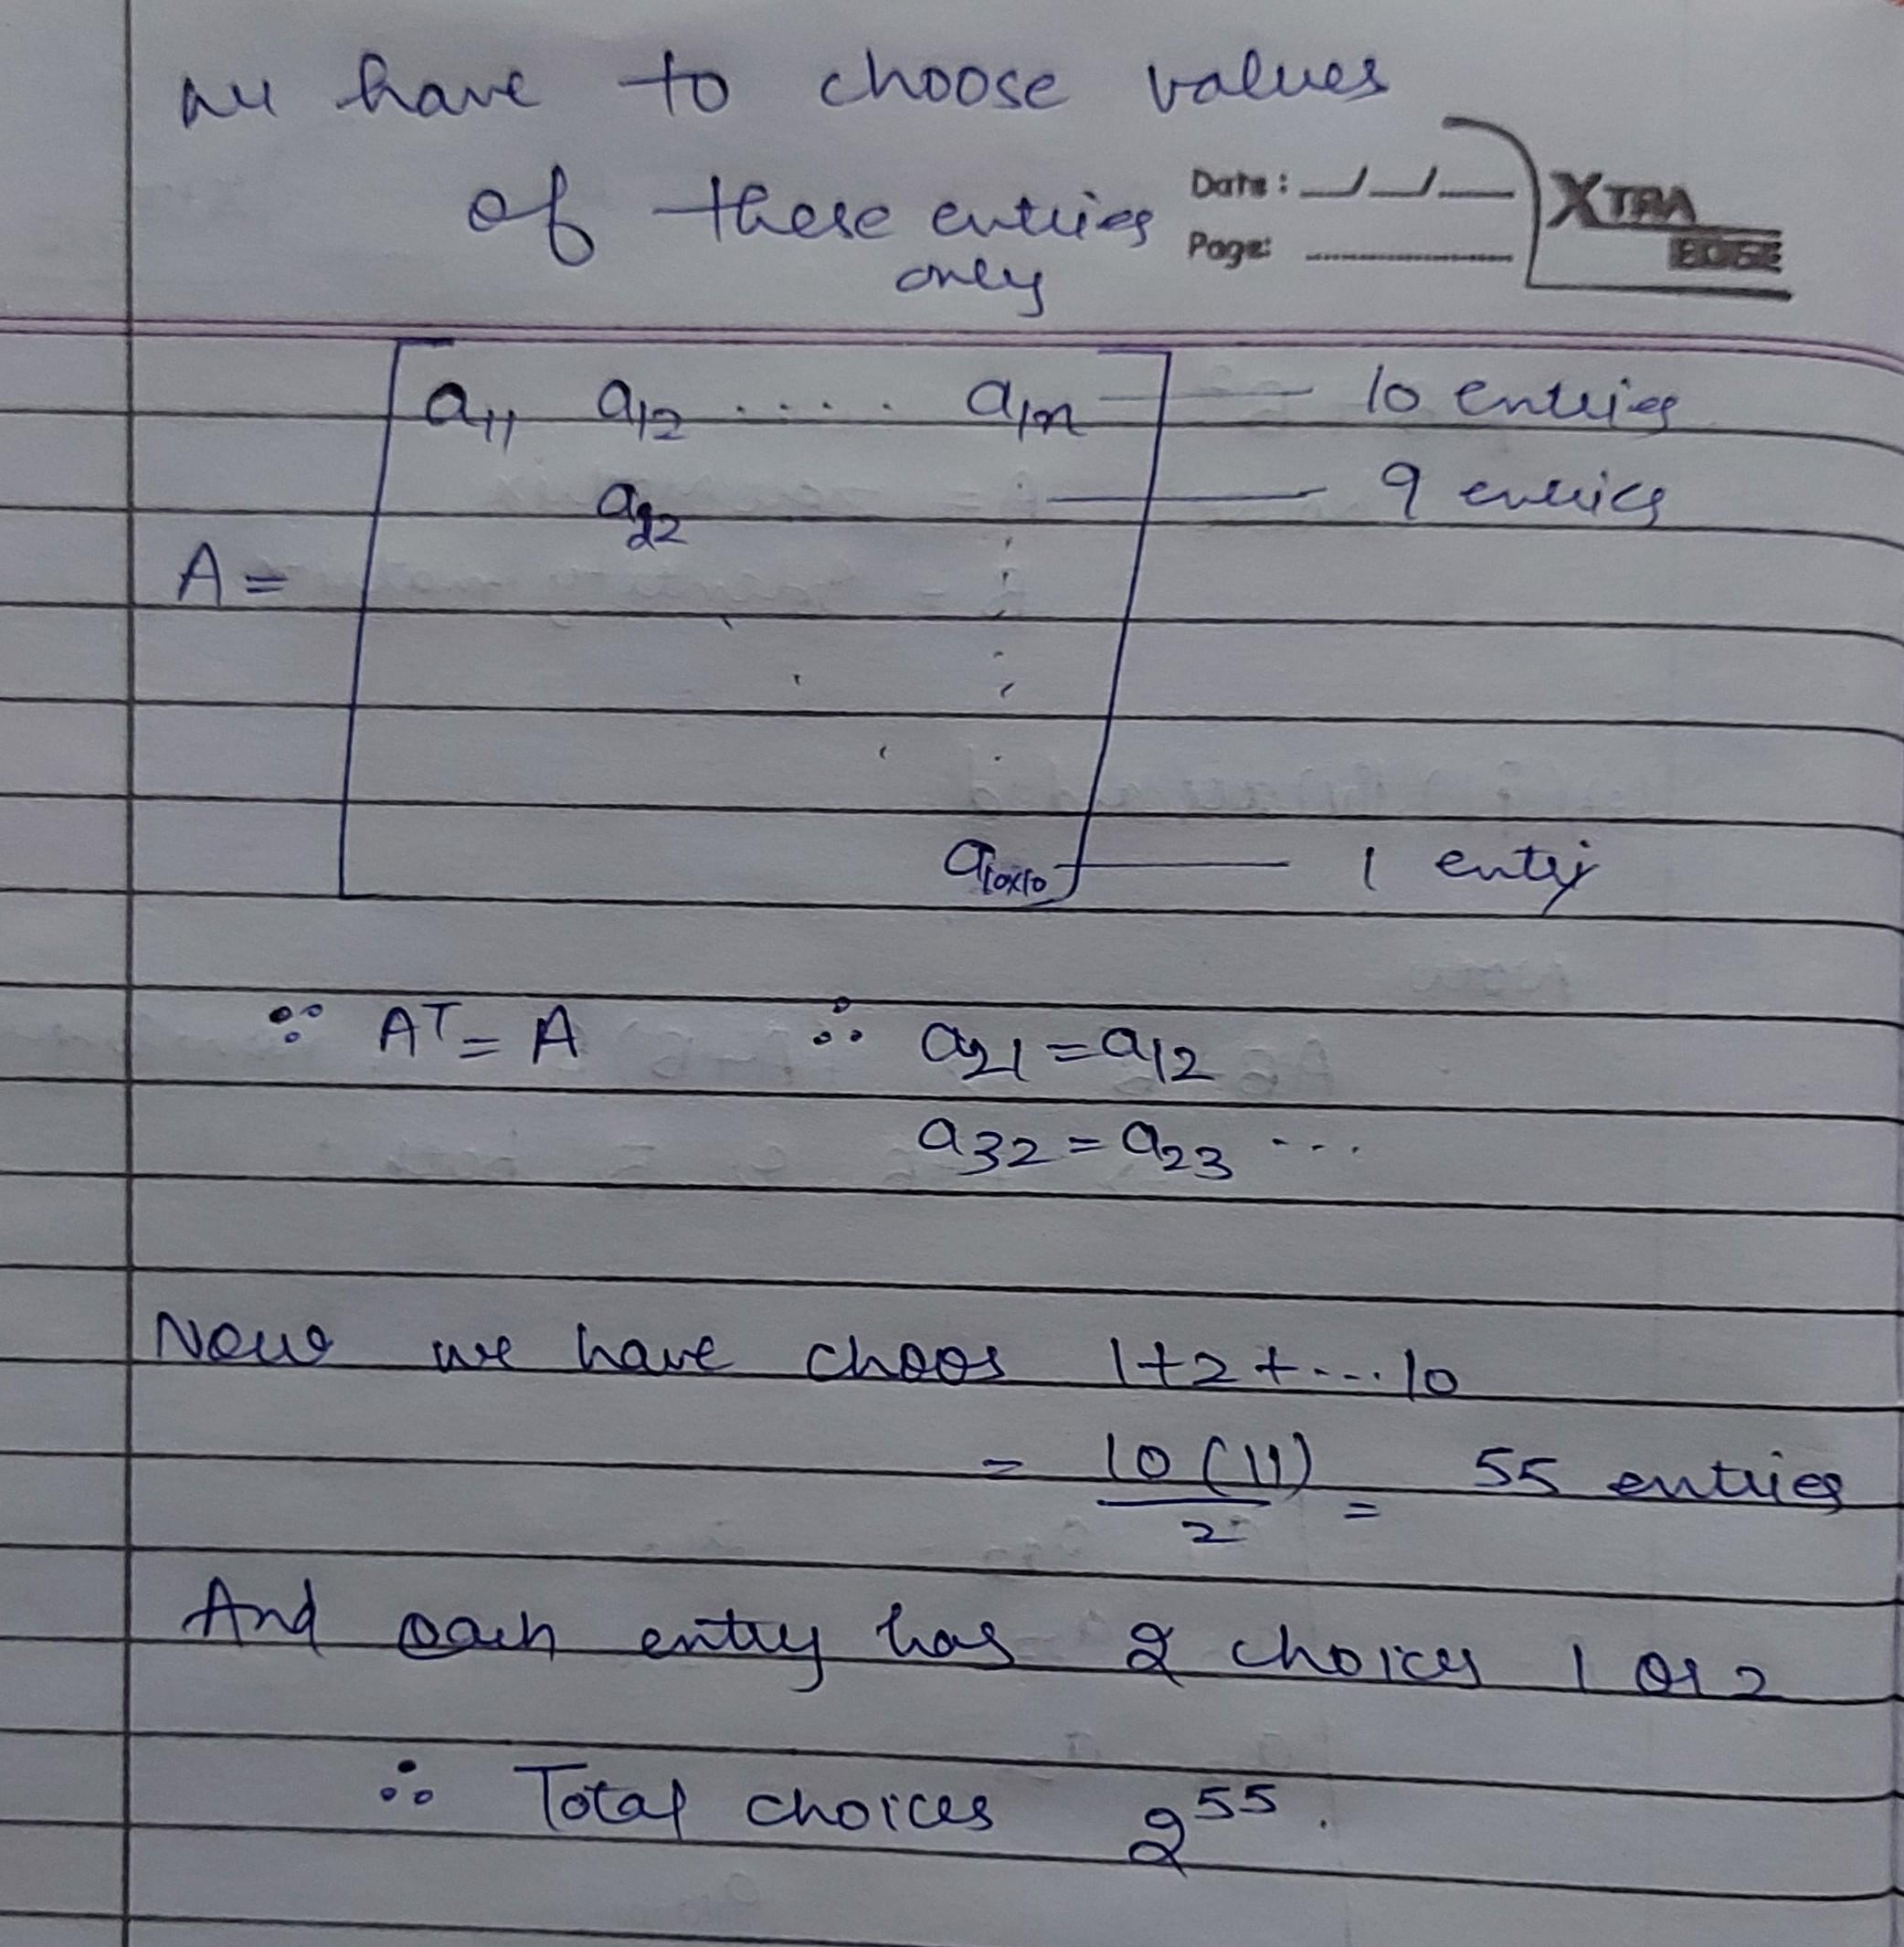 we have to choose values
of these entries
only
Date: __/__/__
Page:
XTRA
EDGE
a₁₁ a₁₂ .... a₁ₙ — 10 entries
a₂₂ — 9 entries
A =
a₁₀ₓ₁₀ — 1 entry
∵ Aᵀ = A ∴ a₂₁ = a₁₂
a₃₂ = a₂₃ ...
Now we have choos 1+2+...10
= 10(11)/2 = 55 entries
And each entry has 2 choices 1 or 2
∴ Total choices 2⁵⁵.